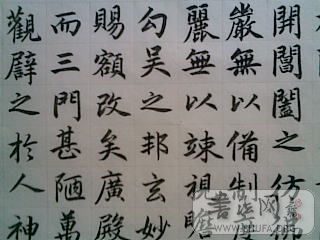 開閶闔之彷彿
嚴無以備制度
麗無以竦視瞻
勾吳之邦玄妙
賜額改矣廣殿
而三門甚陋萬
觀譬之於人神